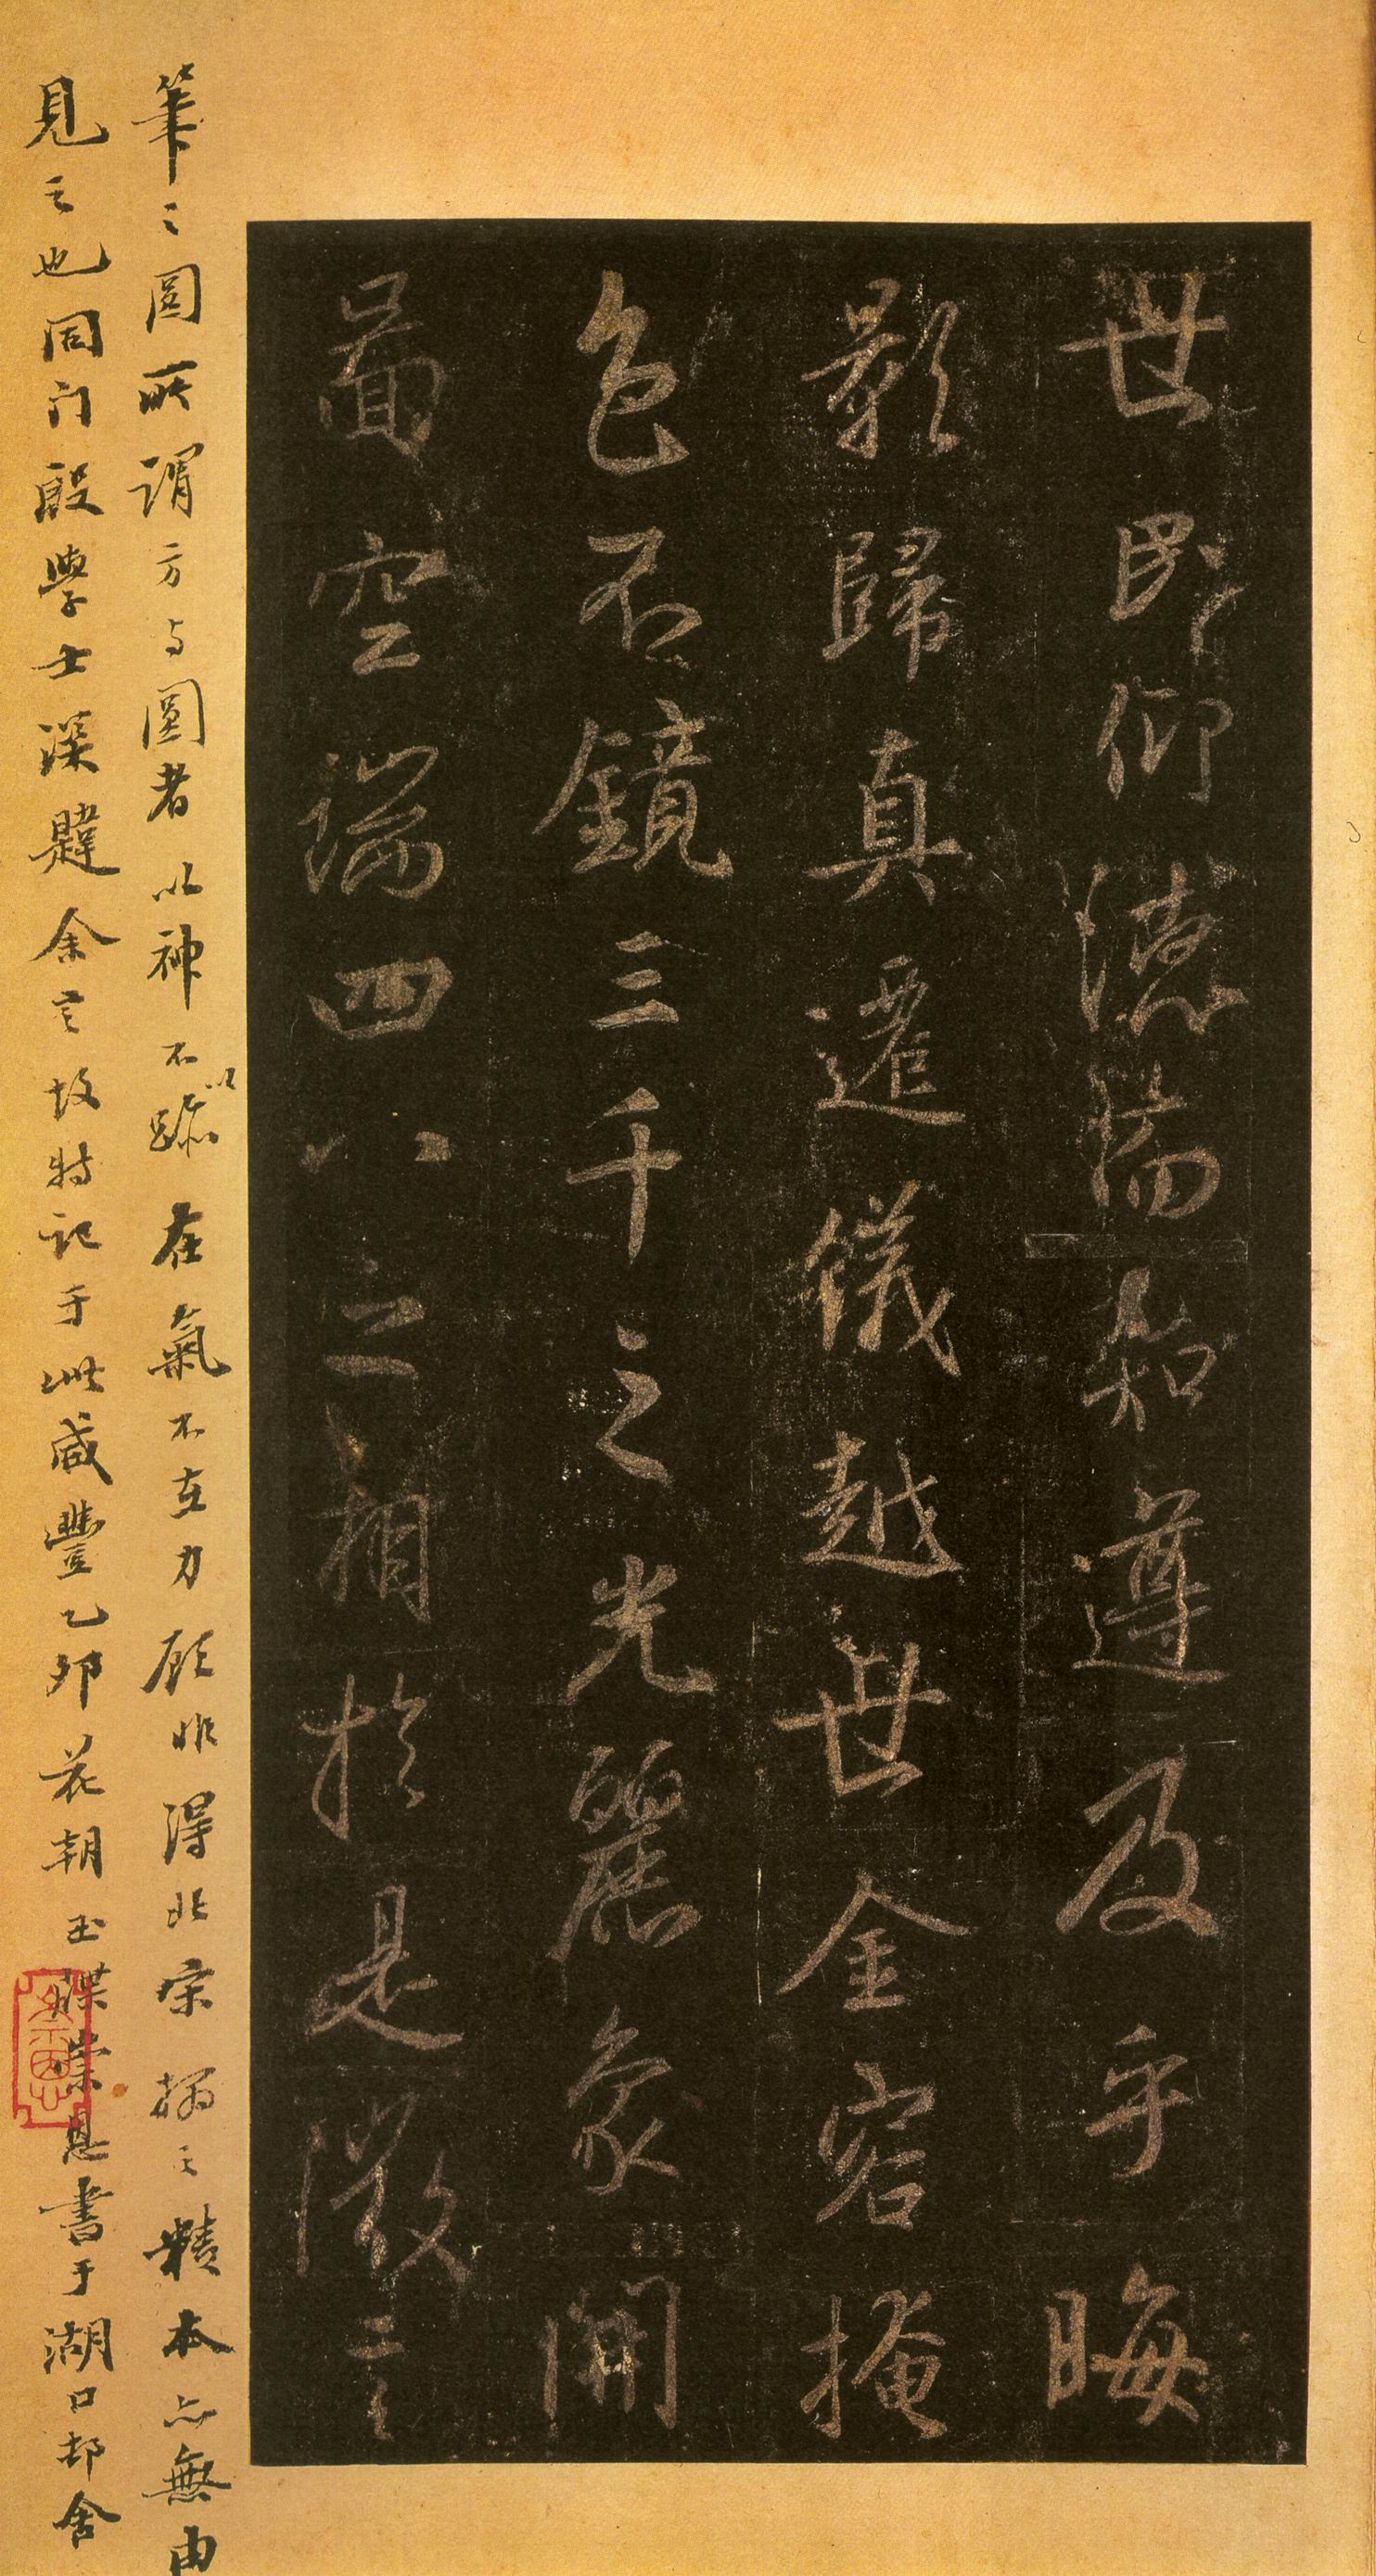 世民仰德而知遵及乎晦
影歸真遷儀越世金容掩
色不鏡三千之光麗象開
啚空端四八之相於是微言
筆之圓所謂方与圓者以神不以跡在氣不在力顧非得北宋搨之精本亦無由
見之也同門殷學士深韙余言故特記于此咸豐乙卯花朝玉牒崇恩書于湖口邨舍
崇恩